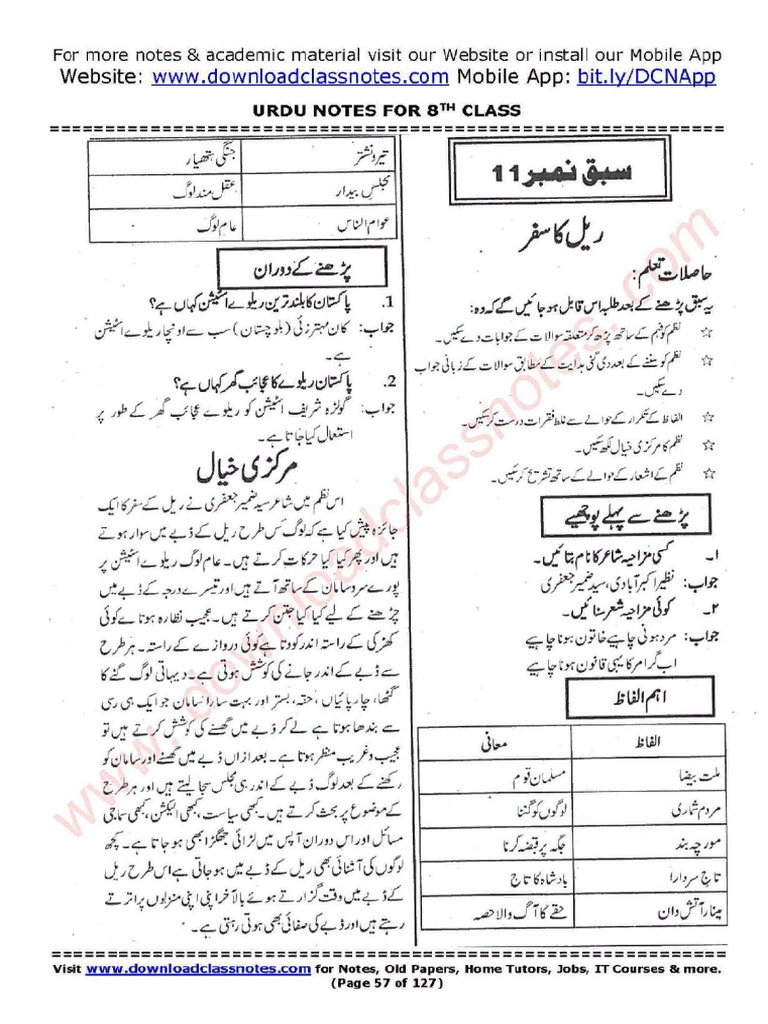 For more notes & academic material visit our Website or install our Mobile App
Website: www.downloadclassnotes.com Mobile App: bit.ly/DCNApp
URDU NOTES FOR 8TH CLASS
سبق نمبر 11
ریل کا سفر
حاصلات تعلم:
یہ سبق پڑھنے کے بعد طلبہ اس قابل ہو جائیں گے کہ وہ:
☆ نظم کو فہم کے ساتھ پڑھ کر متعلقہ سوالات کے جوابات دے سکیں۔
☆ نظم کو سننے کے بعد دی گئی ہدایت کے مطابق سوالات کے زبانی جواب
دے سکیں۔
☆ الفاظ کے تکرار کے حوالے سے غلط فقرات درست کر سکیں۔
☆ نظم کا مرکزی خیال لکھ سکیں۔
☆ نظم کے اشعار کے حوالے کے ساتھ تشریح کر سکیں۔
پڑھنے سے پہلے پوچھیے
۱۔ کسی مزاحیہ شاعر کا نام بتائیں۔
جواب: نظیر اکبر آبادی، سید ضمیر جعفری
۲۔ کوئی مزاحیہ شعر سنائیں۔
جواب: مرد ہونی چاہیے خاتون ہونا چاہیے
اب گرامر کا یہی قانون ہونا چاہیے
اہم الفاظ
الفاظ معانی
ملت بیضا مسلمان قوم
مردم شماری لوگوں کو گننا
مورچہ بند جگہ پر قبضہ کرنا
تاج سردارا بادشاہ کا تاج
مینار آتش دان حقے کا آگ والا حصہ
تیر و نشتر جنگی ہتھیار
مجلس بیدار عقل مند لوگ
عوام الناس عام لوگ
پڑھنے کے دوران
1. پاکستان کا بلند ترین ریلوے اسٹیشن کہاں ہے؟
جواب: کان مہترزئی (بلوچستان) سب سے اونچا ریلوے اسٹیشن
ہے۔
2. پاکستان ریلوے کا عجائب گھر کہاں ہے؟
جواب: گولڑہ شریف اسٹیشن کو ریلوے عجائب گھر کے طور پر
استعمال کیا جاتا ہے۔
مرکزی خیال
اس نظم میں شاعر سید ضمیر جعفری نے ریل کے سفر کا ایک
جائزہ پیش کیا ہے کہ لوگ کس طرح ریل کے ڈبے میں سوار ہوتے
ہیں اور پھر کیا کیا حرکات کرتے ہیں۔ عام لوگ ریلوے اسٹیشن پر
پورے سرد سامان کے ساتھ آتے ہیں اور تیسرے درجہ کے ڈبے میں
چڑھنے کے لیے کیا کیا جتن کرتے ہیں۔ عجیب نظارہ ہوتا ہے کوئی
کھڑکی کے راستہ اندر کودتا ہے کوئی دروازے کے راستہ۔ ہر طرح
سے ڈبے کے اندر جانے کی کوشش ہوتی ہے۔ دیہاتی لوگ گنے کا
گٹھا، چارپائیاں، حقہ، بستر اور بہت سارا سامان جو ایک ہی رسی
سے بندھا ہوتا ہے لے کر ڈبے میں گھسنے کی کوشش کرتے ہیں تو
عجیب و غریب منظر ہوتا ہے۔ بعد ازاں ڈبے میں گھسنے اور سامان کو
رکھنے کے بعد لوگ ڈبے کے اندر ہی مجلس سجا لیتے ہیں اور ہر طرح
کے موضوع پر بحث کرتے ہیں۔ کبھی سیاست، کبھی الیکشن، کبھی سماجی
مسائل اور اس دوران آپس میں لڑائی جھگڑا بھی ہو جاتا ہے۔ کچھ
لوگوں کی آشنائی بھی ریل کے ڈبے میں ہو جاتی ہے اس طرح ریل
کے ڈبے میں وقت گزارتے ہوئے بالآخر اپنی اپنی منزلوں پر اترتے
رہتے ہیں اور ڈبے کی صفائی بھی ہوتی رہتی ہے۔
www.downloadclassnotes.com
Visit www.downloadclassnotes.com for Notes, Old Papers, Home Tutors, Jobs, IT Courses & more.
(Page 57 of 127)